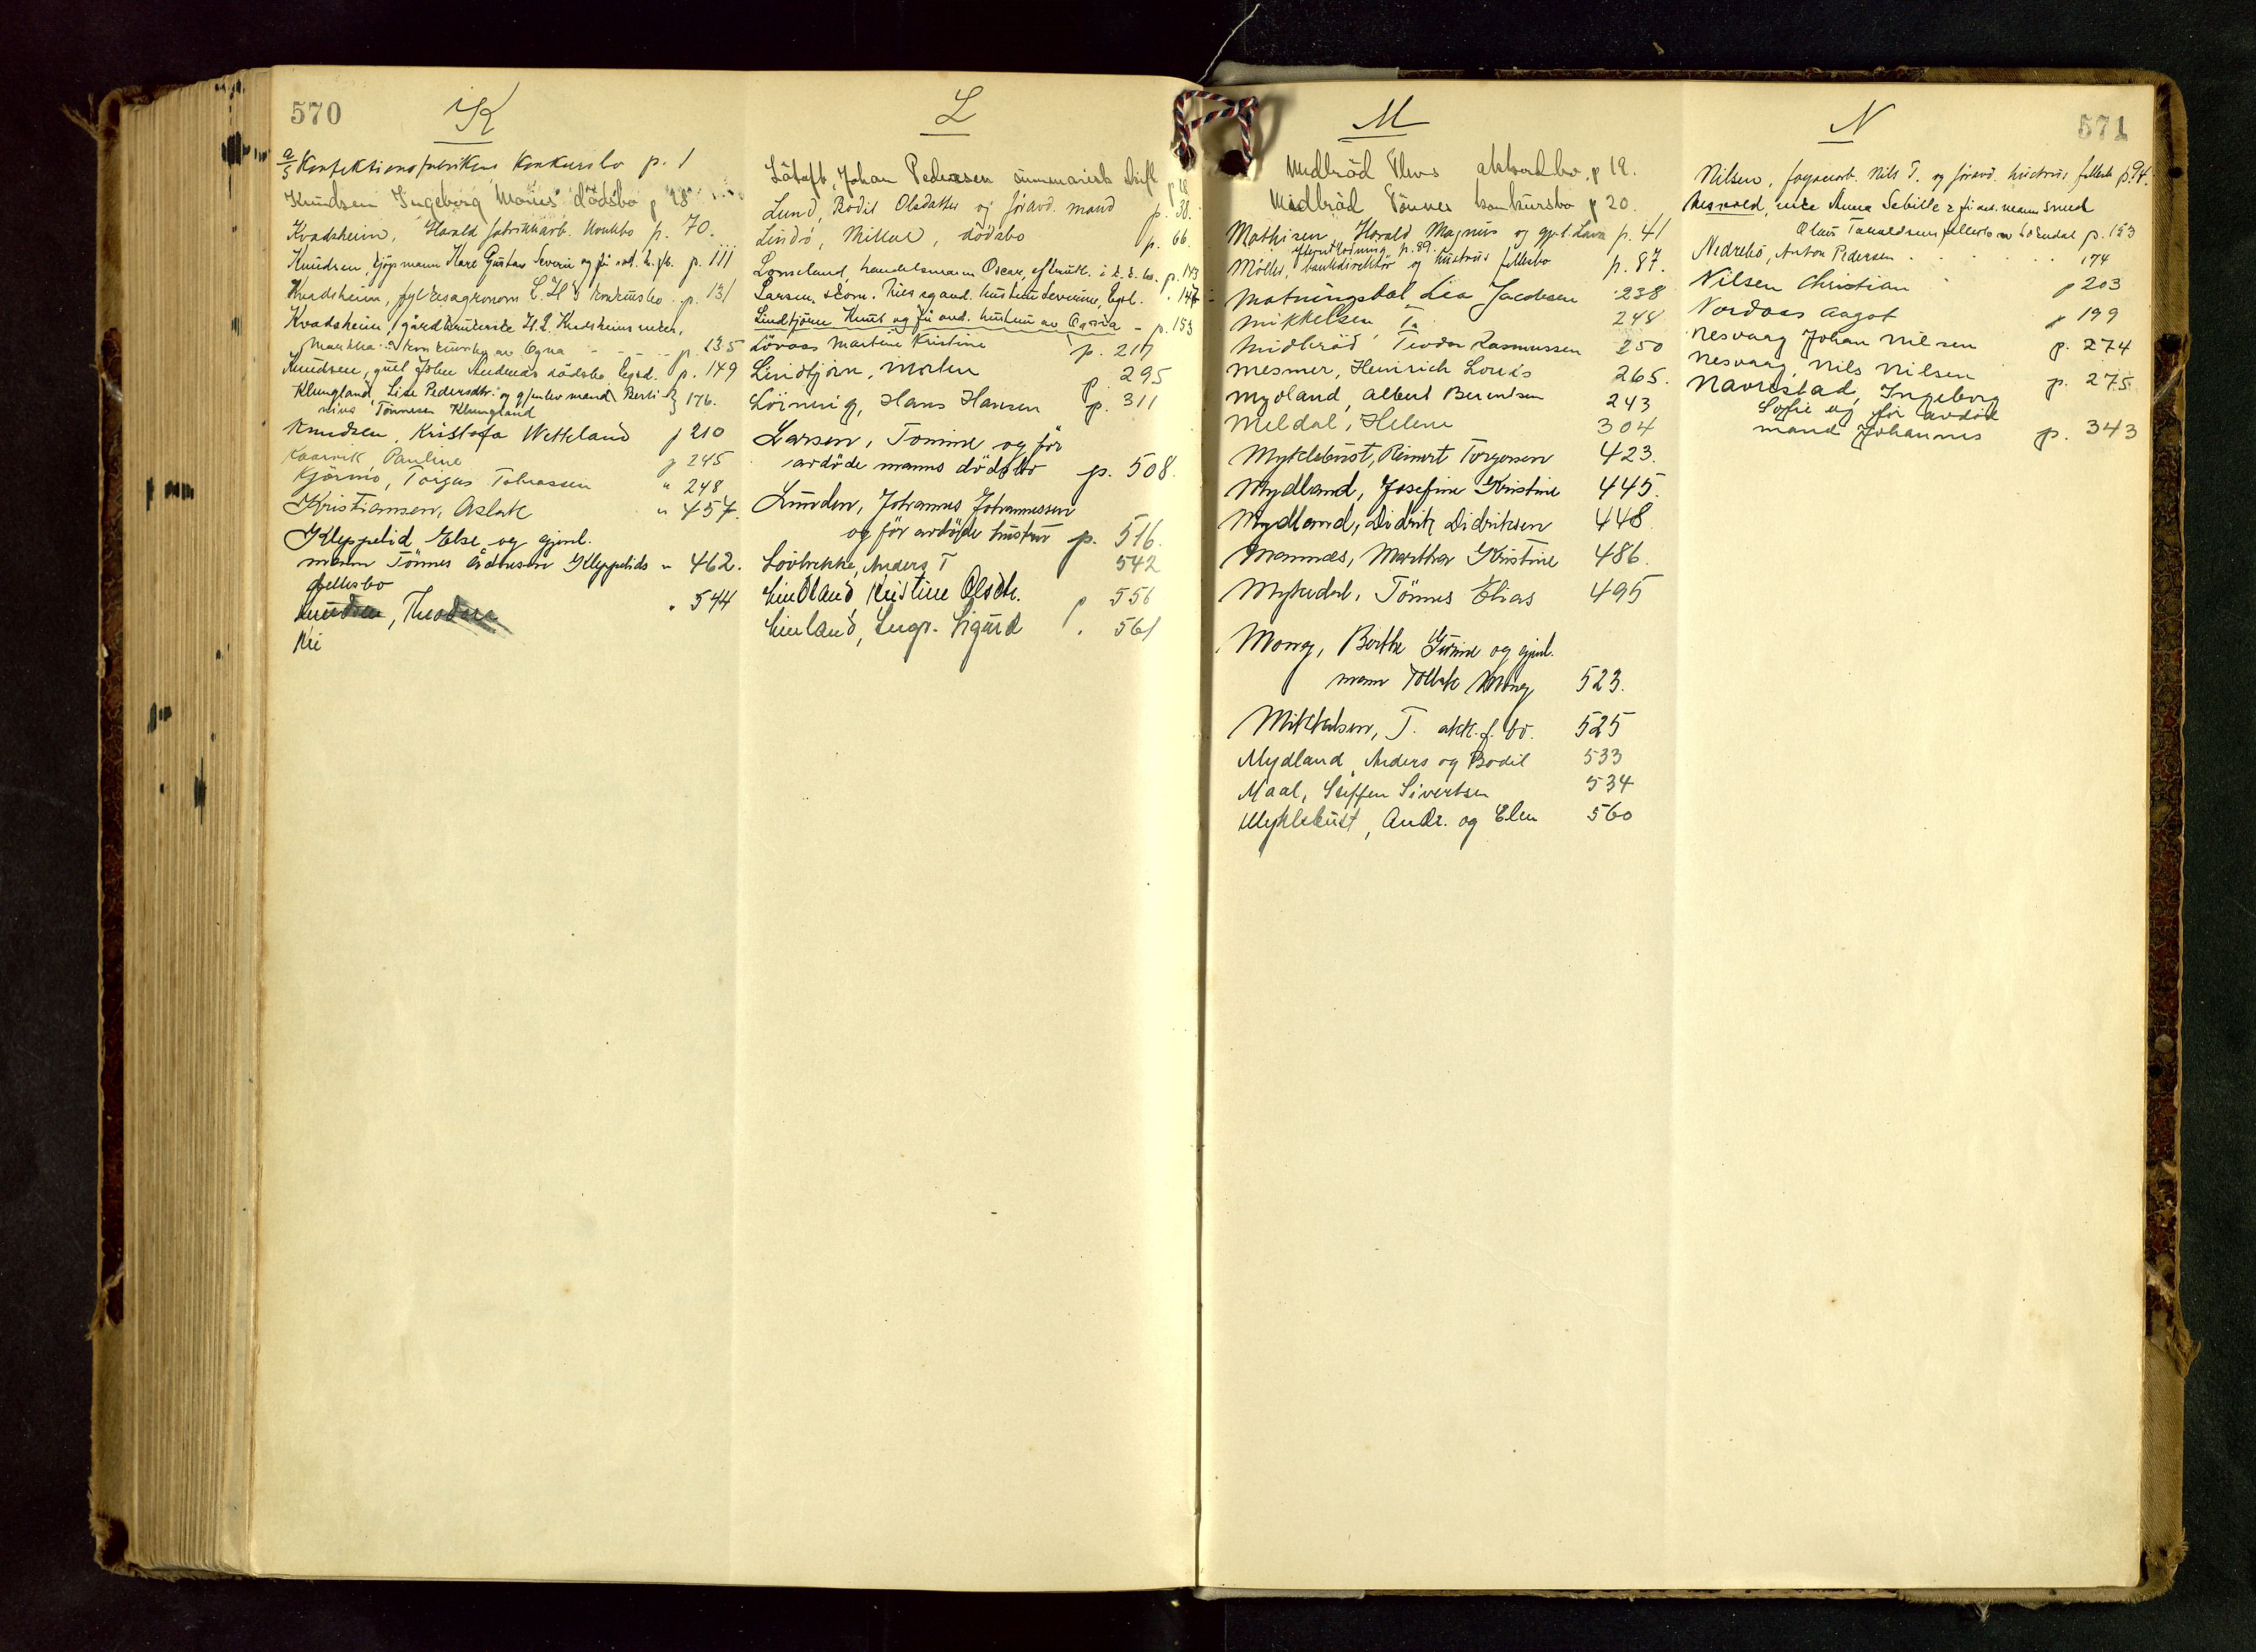 570
K
a/s Konfektionsfabrikens Konkursbo p. 1
Knudsen Ingeborg Maries dödsbo p 28
Kvadsheim, Harald fabrikkarb. Konkbo p. 70.
Knudsen, kjöpmann Kare Gustav Severin og p. 111
Kvadsheim, fylkesagronom C. H's konkursbo p. 131
Kvadsheim, gårdbruker
konkursbo av Ogna p. 135
Knudsen, John dödsbo p. 149
Klungland, Lise Pedersdtr. og gjenlev mand Berti
nius Tönnesen Klungland } 176.
Knudsen, Kristofa Wetteland p 210
Kaarvik Pauline p 245
Kjörmo, Torgus Tobiassen " 248
Kristiansen, Aslak " 457.
Kleppelid Else og gjenl.
mann Tönnes Kleppelids " 462.
fellesbo
Knudsen, Theodora " 544
Kri
L
Johan Pedersen summarisk skift p
Lund, Bodil Olsdatter og föravd. mand p. 38.
Lindö, Mikkal, dödsbo p. 66.
Lomeland, handelsmann Oscar, p. 143
Larsen, hustru Severine, p. 146
Lindtjörn Knut og hustru av Ogna - p. 153
Lövaas Martine Kristine p. 217
Lindtjörn, Morten p. 295
Lörning, Hans Hansen p. 311
Larsen, Tomine og för
avdöde manns dödsbo p. 508.
Lunden, Johannes Johannessen
og för avdöde hustru p. 516.
Lövbrekke, Anders T 542
Lindland Kristine Olsdtr. p 556
Linland, Ingv. Sigurd " 561
M
Midbröd Thevs akkordbo. p 19.
Midbröd Tönnes konkursbo p 20.
Mathisen Harald Magnus og gjenl. Lava p. 41
p. 89.
Möller, bankdirektör og hustrus fellesbo p. 87.
Motningsdal, Lea Jacobsen 238
Mikkelsen T. 248
Midbröd, Teodor Rasmussen 250
Mesmer, Heinrich Louis 265.
Mydland, Albert Berentsen 243
Meldal, Helene 304
Myklebust, Reinert Torgersen 423.
Mydland, Josefine Kristine 445.
Mydland, Didrik Didriksen 448.
Mannæs, Martha Kristine 486.
Tönnes Elias 495
Mong, Berthe Gurine og gjenl.
mann Tollak Mong 523.
Mikkelsen, T. akk. f. bo. 525
Mydland Anders og Bodil 533
Maal, Steffen Sivertsen 534
Myklebust, Andr. og Elen 560
N
571
Nilsen, Nils T. og föravd. hustrus fellesb p. 94.
Nesvold, enke Anna Sebille & för avd. mann Smed
Olaus Taraldsens fellesbo p. 153
Nedrebö, Anton Pedersen 174
Nilsen Christian p 203
Nordaas Aagot p 199
Nesvaag Johan Nilsen p. 274
Nesvaag, Nils Nilsen p. 275
Navrestad, Ingeborg
Sofie og för avdöd
mand Johannes p. 343